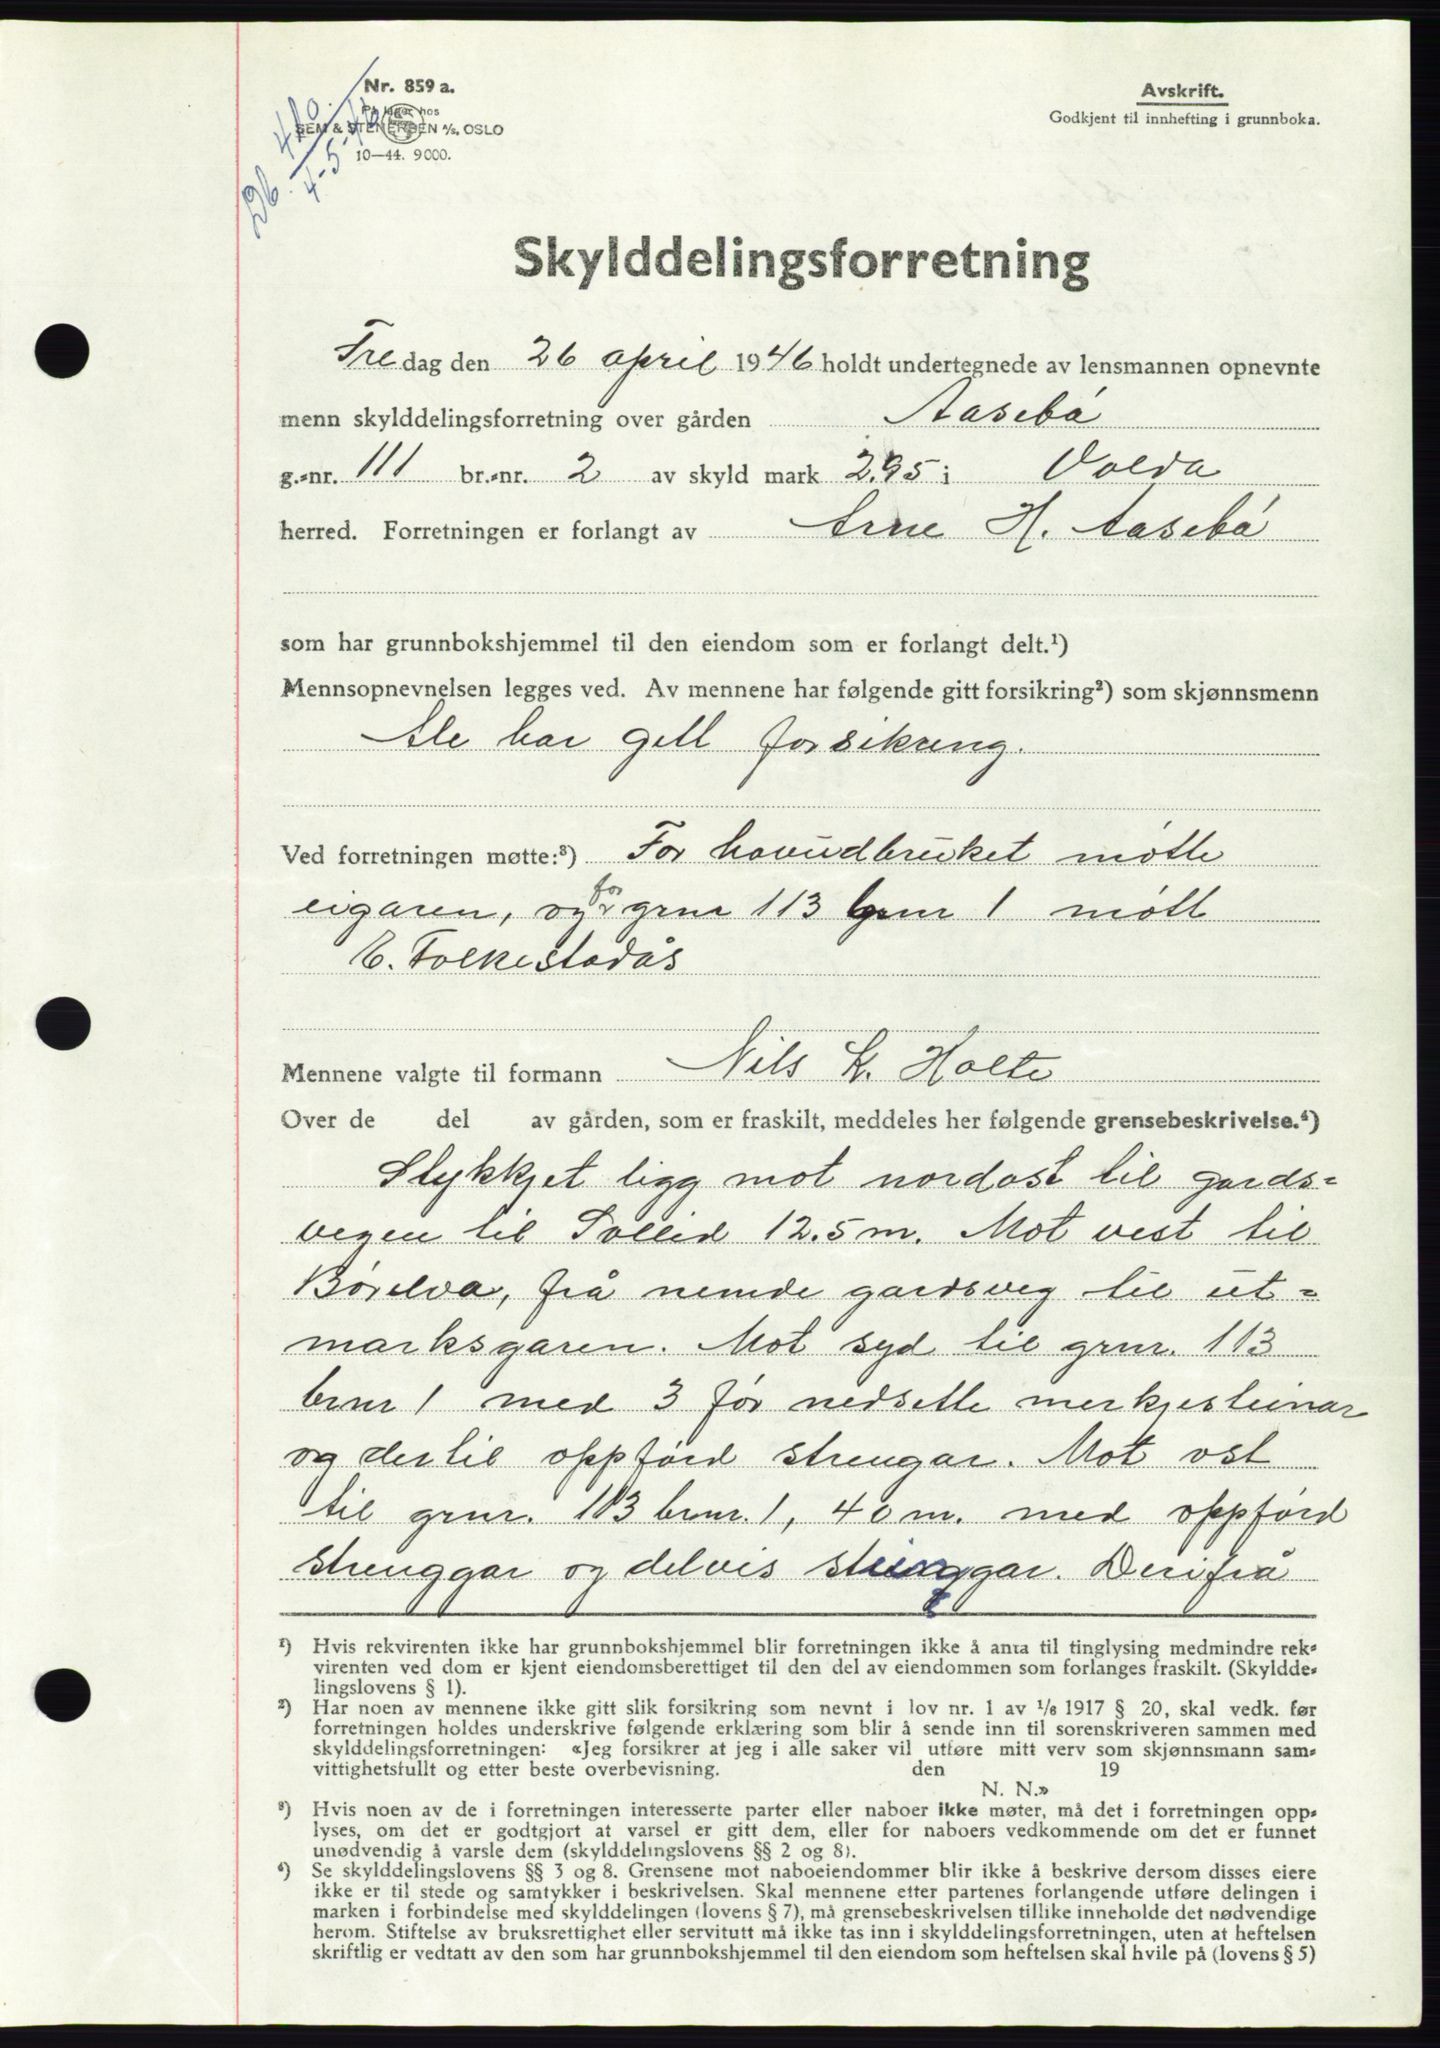 Nr. 859 a.
På lager hos
SEM & STENERSEN A/S, OSLO
10—44. 9000.
Db 480. / 4-5-46
Avskrift.
Godkjent til innhefting i grunnboka.
Skylddelingsforretning
Fredag den 26 april 1946 holdt undertegnede av lensmannen opnevnte
menn skylddelingsforretning over gården Aasebö
g.-nr. 111 br.-nr. 2 av skyld mark 2.95 i Volda
herred. Forretningen er forlangt av Arne H. Aasebö
som har grunnbokshjemmel til den eiendom som er forlangt delt.¹)
Mennsopnevnelsen legges ved. Av mennene har følgende gitt forsikring²) som skjønnsmenn
Ale har gett forsikring.
Ved forretningen møtte:³) For hovudbruket mötte
eigaren, og for grnr 113 brnr 1 mött
E. Folkestadås
Mennene valgte til formann Nils K. Holte
Over de del av gården, som er fraskilt, meddeles her følgende grensebeskrivelse.⁴)
Stykkjet ligg mot nordost til gards-
vegen til Sollid 12.5 m. Mot vest til
Börelva, frå nemde gardsveg til ut-
marksgaren. Mot syd til grnr. 113
brnr 1 med 3 för nedsette merkjesteinar
og dertil oppförd strengar. Mot ost
til grnr. 113 brnr. 1, 40 m. med oppförd
strenggar og delvis steinggar. Derifrå
¹) Hvis rekvirenten ikke har grunnbokshjemmel blir forretningen ikke å anta til tinglysing medmindre rek-
virenten ved dom er kjent eiendomsberettiget til den del av eiendommen som forlanges fraskilt. (Skyldde-
lingslovens § 1).
²) Har noen av mennene ikke gitt slik forsikring som nevnt i lov nr. 1 av 1/6 1917 § 20, skal vedk. før
forretningen holdes underskrive følgende erklæring som blir å sende inn til sorenskriveren sammen med
skylddelingsforretningen: «Jeg forsikrer at jeg i alle saker vil utføre mitt verv som skjønnsmann sam-
vittighetsfullt og etter beste overbevisning. den 19
N. N.»
³) Hvis noen av de i forretningen interesserte parter eller naboer ikke møter, må det i forretningen opp-
lyses, om det er godtgjort at varsel er gitt dem, eller for naboers vedkommende om det er funnet
unødvendig å varsle dem (skylddelingslovens §§ 2 og 8).
⁴) Se skylddelingslovens §§ 3 og 8. Grensene mot naboeiendommer blir ikke å beskrive dersom disses eiere
ikke er til stede og samtykker i beskrivelsen. Skal mennene etter partenes forlangende utføre delingen i
marken i forbindelse med skylddelingen (lovens § 7), må grensebeskrivelsen tillike inneholde det nødvendige
herom. Stiftelse av bruksrettighet eller servitutt må ikke tas inn i skylddelingsforretningen, uten at heftelsen
skriftlig er vedtatt av den som har grunnbokshjemmel til den eiendom som heftelsen skal hvile på (lovens § 5)